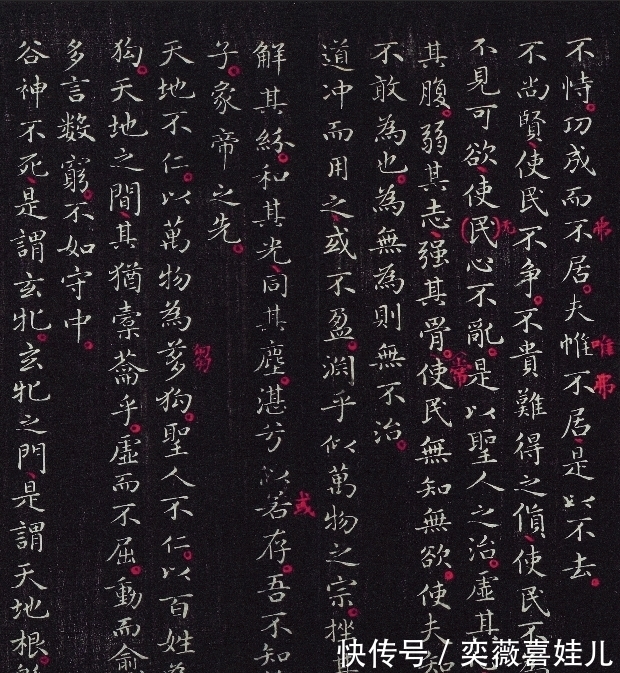 不恃。功成而不居。夫惟不居。是以不去。
弗
唯
弗
不尚賢、使民不争。不貴難得之貨、使民不為
不見可欲、使(民)心不亂。是以聖人之治。虛其
无
其腹。弱其志、强其骨。使民無知無欲。使夫知
常
不敢為也。為無為則無不治。
道冲而用之、或不盈。淵乎似萬物之宗。挫其
解其紛。和其光、同其塵。湛兮似若存。吾不知
或
子、象帝之先。
天地不仁。以萬物為芻狗。聖人不仁。以百姓為
芻
狗。天地之間、其猶橐籥乎。虛而不屈。動而俞
多言數窮。不如守中。
谷神不死、是謂玄牝。玄牝之門、是謂天地根。
快传号 / 奕薇喜娃儿